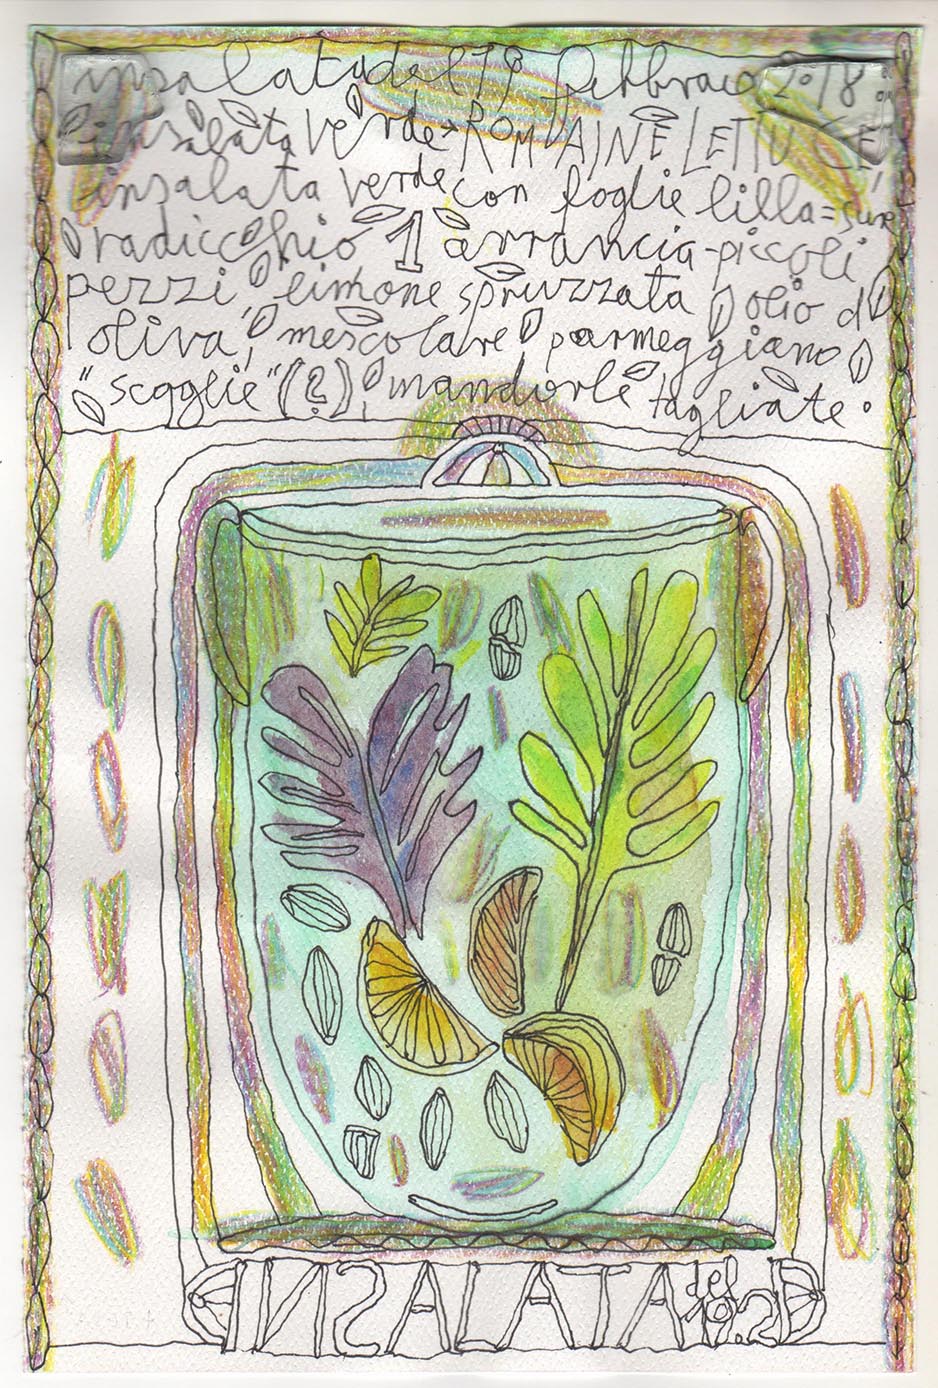 insalata del 19 febbraio 2018:
insalata verde = ROMAINE LETTUCE,
insalata verde con foglie lilla =
radicchio 1 arrancia - piccoli
pezzi, limone spruzzata, olio d'
oliva, mescolare parmeggiano
"scaglie" (?), mandorle tagliate.
INSALATA del 19.2